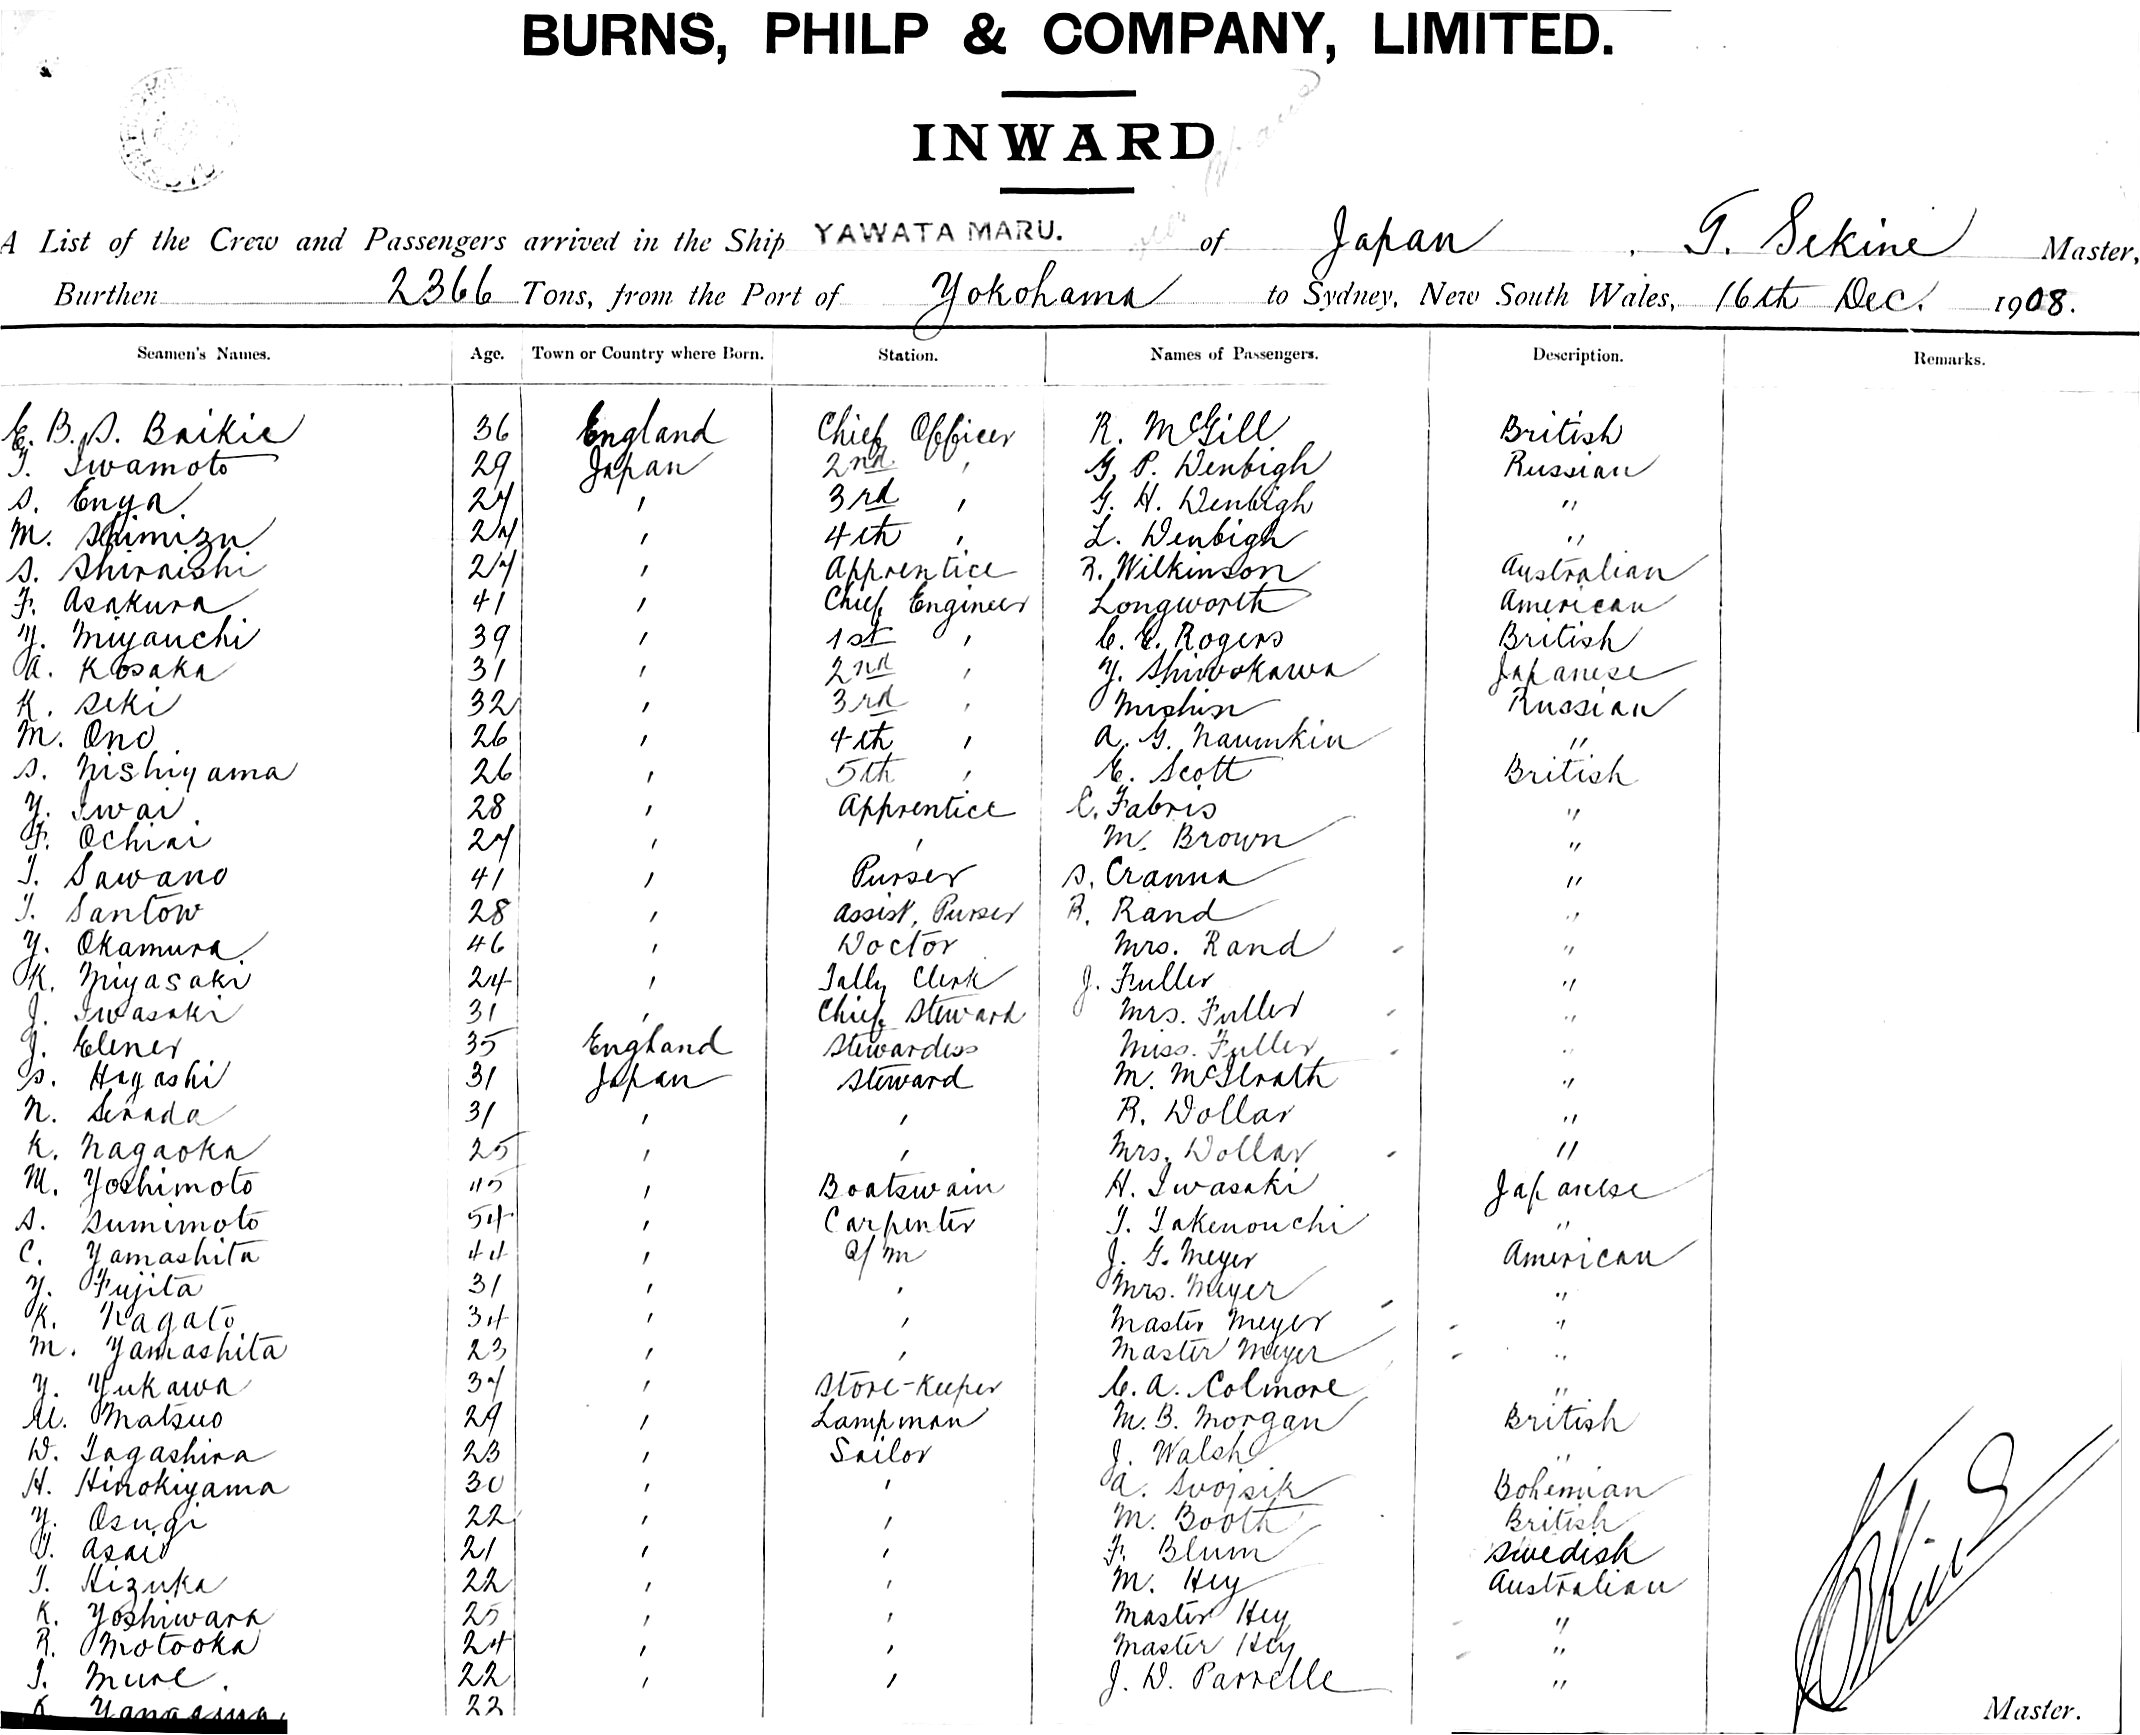 BURNS, PHILP & COMPANY, LIMITED.
INWARD
A List of the Crew and Passengers arrived in the Ship YAWATA MARU. of Japan, T. Sekine Master,
Burthen 2366 Tons, from the Port of Yokohama to Sydney, New South Wales, 16th Dec. 1908.
Seamen's Names. Age. Town or Country where Born. Station. Names of Passengers. Description. Remarks.
E. B. S. Baikie 36 England Chief Officer R. McGill British
T. Iwamoto 29 Japan 2nd " G. P. Denbigh Russian
S. Enya 27 " 3rd " G. H. Denbigh "
M. Shimizu 27 " 4th " L. Denbigh "
S. Shiraishi 27 " Apprentice R. Wilkinson Australian
F. Asakura 41 " Chief Engineer Longworth American
Y. Miyauchi 39 " 1st " C. E. Rogers British
A. Kosaka 31 " 2nd " Y. Shirokawa Japanese
K. Seki 32 " 3rd " Mishin Russian
M. Ono 26 " 4th " A. G. Naumkin "
S. Nishiyama 26 " 5th " E. Scott British
Y. Iwai 28 " Apprentice C. Fabris "
F. Ochiai 27 " " M. Brown "
T. Sawano 41 " Purser S. Cranna "
T. Santow 28 " Assist. Purser R. Rand "
Y. Okamura 46 " Doctor Mrs. Rand "
K. Miyasaki 24 " Tally Clerk J. Fuller "
J. Iwasaki 31 " Chief Steward Mrs. Fuller "
J. Elener 35 England Stewardess Miss. Fuller "
S. Hayashi 31 Japan Steward M. McIlrath "
N. Senada 31 " " R. Dollar "
K. Nagaoka 25 " " Mrs. Dollar "
M. Yoshimoto 45 " Boatswain H. Iwasaki Japanese
S. Sumimoto 54 " Carpenter T. Takenouchi "
C. Yamashita 44 " Q/M J. G. Meyer American
Y. Fujita 31 " " Mrs. Meyer "
K. Nagato 34 " " Master Meyer "
M. Yamashita 23 " " Master Meyer "
Y. Yukawa 37 " Store-Keeper C. A. Colmore "
U. Matsuo 29 " Lampman M. B. Morgan British
D. Tagashira 23 " Sailor J. Walsh "
H. Hinokiyama 30 " " A. Svojsik Bohemian
Y. Osugi 22 " " M. Booth British
T. Asai 21 " " F. Blum Swedish
T. Hizuka 22 " " M. Hey Australian
K. Yoshiwara 25 " " Master Hey "
R. Motooka 24 " " Master Hey "
T. Mure. 22 " " J. D. Parrelle "
22
Master.